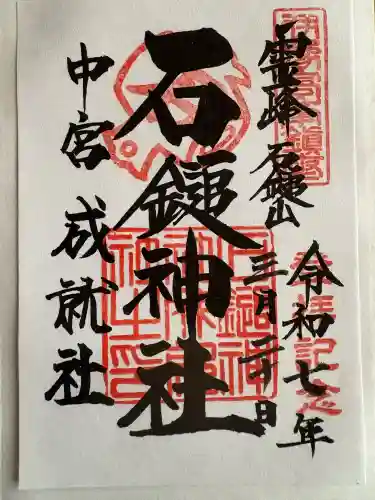 霊峰 石鎚山
令和七年
三月二十日
石鎚神社
中宮 成就社
登拝記念